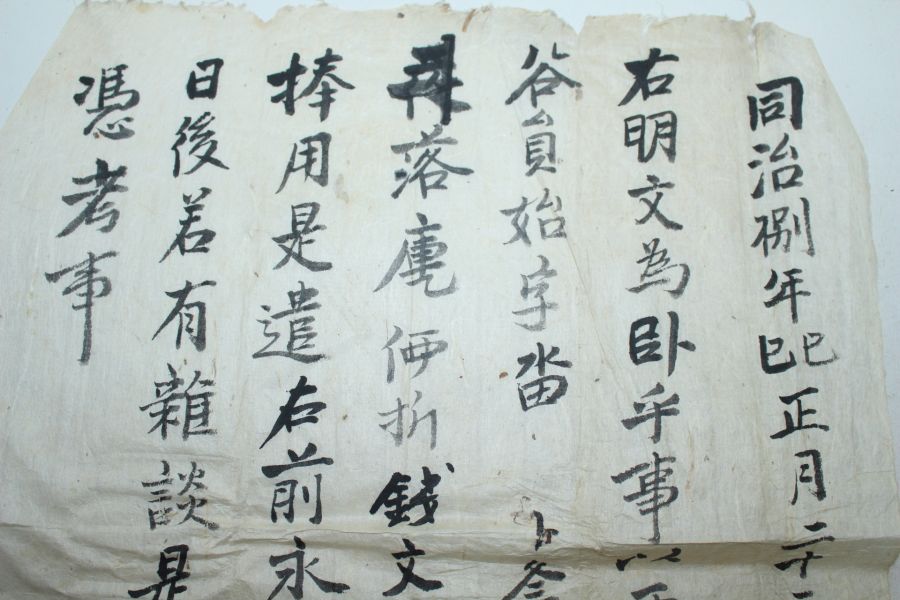 同治捌年己巳正月二十
右明文為卧乎事
谷員始字畓
落庫価折錢文
捧用是遣右前永
日後若有雜談是
憑考事